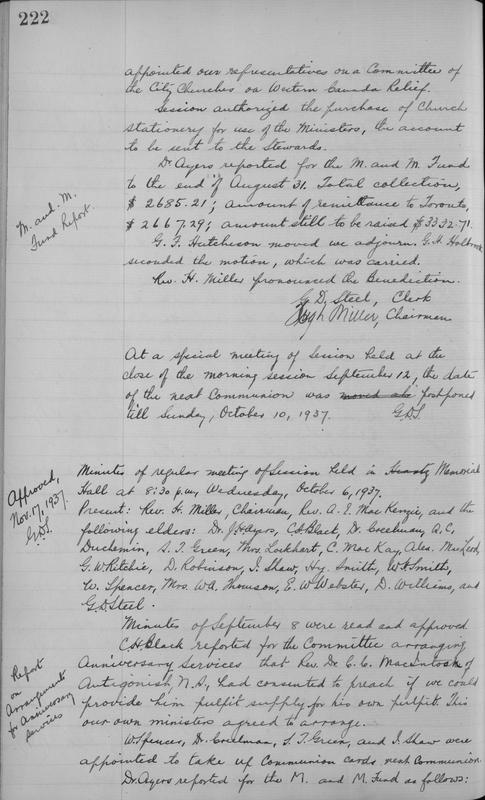 222
appointed our representatives on a Committee of
the City Churches on Western Canada Relief.
Session authorized the purchase of Church
stationery for use of the Ministers, the account
to be sent to the Stewards.
M. and M.
Fund Report.
Dr. Ayers reported for the M. and M. Fund
to the end of August 31. Total collection,
$2685.21; amount of remittance to Toronto,
$2667.29; amount still to be raised $3332.71.
G. F. Hutcheson moved we adjourn. G. H. Holbrook
seconded the motion, which was carried.
Rev. H. Miller pronounced the Benediction.
G. D. Steel, Clerk
Hugh Miller, Chairman
At a special meeting of Session held at the
close of the morning session September 12, the date
of the next Communion was moved postponed
till Sunday, October 10, 1937. G.D.S.
Approved,
Nov. 17, 1937.
G.D.S.
Minutes of regular meeting of Session held in Heartz Memorial
Hall at 8:30 p.m., Wednesday, October 6, 1937.
Present: Rev. H. Miller, Chairman, Rev. A. E. MacKenzie, and the
following elders: Dr. J. H. Ayers, C. H. Black, Dr. Creelman, A. C.
Duchemin, S. T. Green, Thos. Lockhart, C. MacKay, Alex. MacLeod,
G. W. Ritchie, D. Robinson, I. Shaw, Hy. Smith, W. F. Smith,
W. Spencer, Mrs. W. A. Thomson, E. W. Webster, D. Williams, and
G. D. Steel.
Minutes of September 8 were read and approved
Report
on
Arrangements
for Anniversary
Services
C. H. Black reported for the Committee arranging
Anniversary Services that Rev. Dr. C. C. Macintosh of
Antigonish, N.S., had consented to preach if we could
provide him pulpit supply for his own pulpit. This
our own ministers agreed to arrange.
W. Spencer, Dr. Creelman, S. T. Green, and I. Shaw were
appointed to take up Communion cards next Communion.
Dr. Ayers reported for the M. and M. Fund as follows: